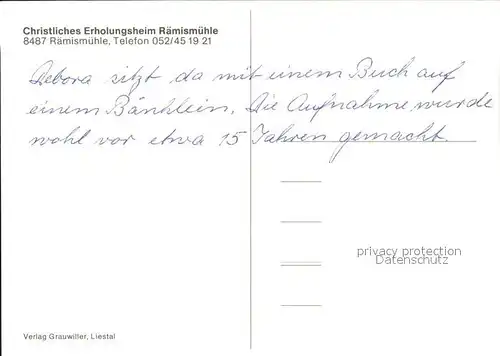 Christliches Erholungsheim Rämismühle
8487 Rämismühle, Telefon 052/45 19 21
Debora sitzt da mit einem Buch auf
einem Bänklein. Die Aufnahme wurde
wohl vor etwa 15 Jahren gemacht.
privacy protection
Datenschutz
Verlag Grauwiller, Liestal